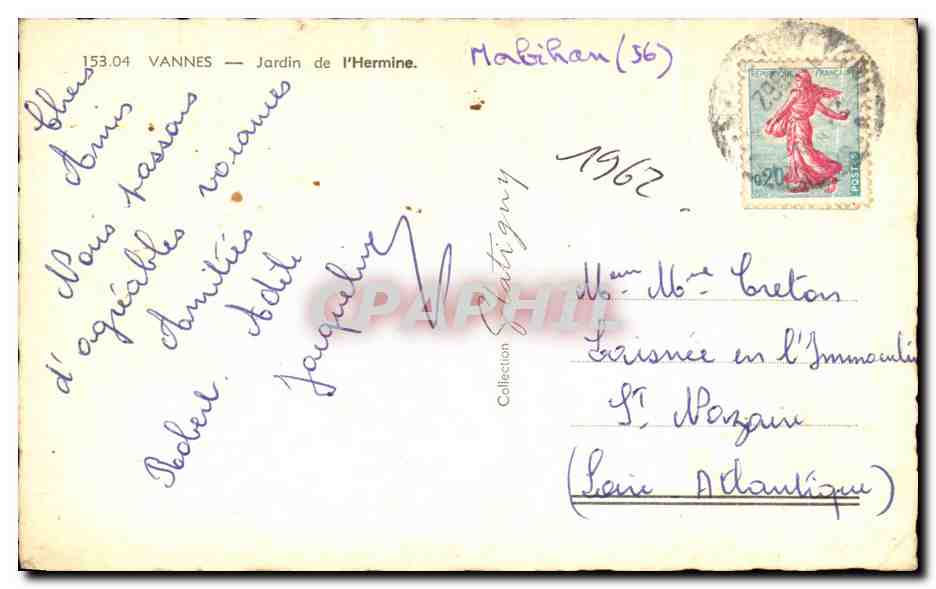 153.04 VANNES — Jardin de l'Hermine.
Morbihan (56)
Chers
Amis
Nous passons
d'agréables vacances
Amitiés
Robert. Adèle
Jacqueline
1962
Collection Glatigny
REPUBLIQUE FRANÇAISE
0,20
POSTES
CPAPHIL
Mr Mme Creton
en l'Immaculée
St Nazaire
(Loire Atlantique)